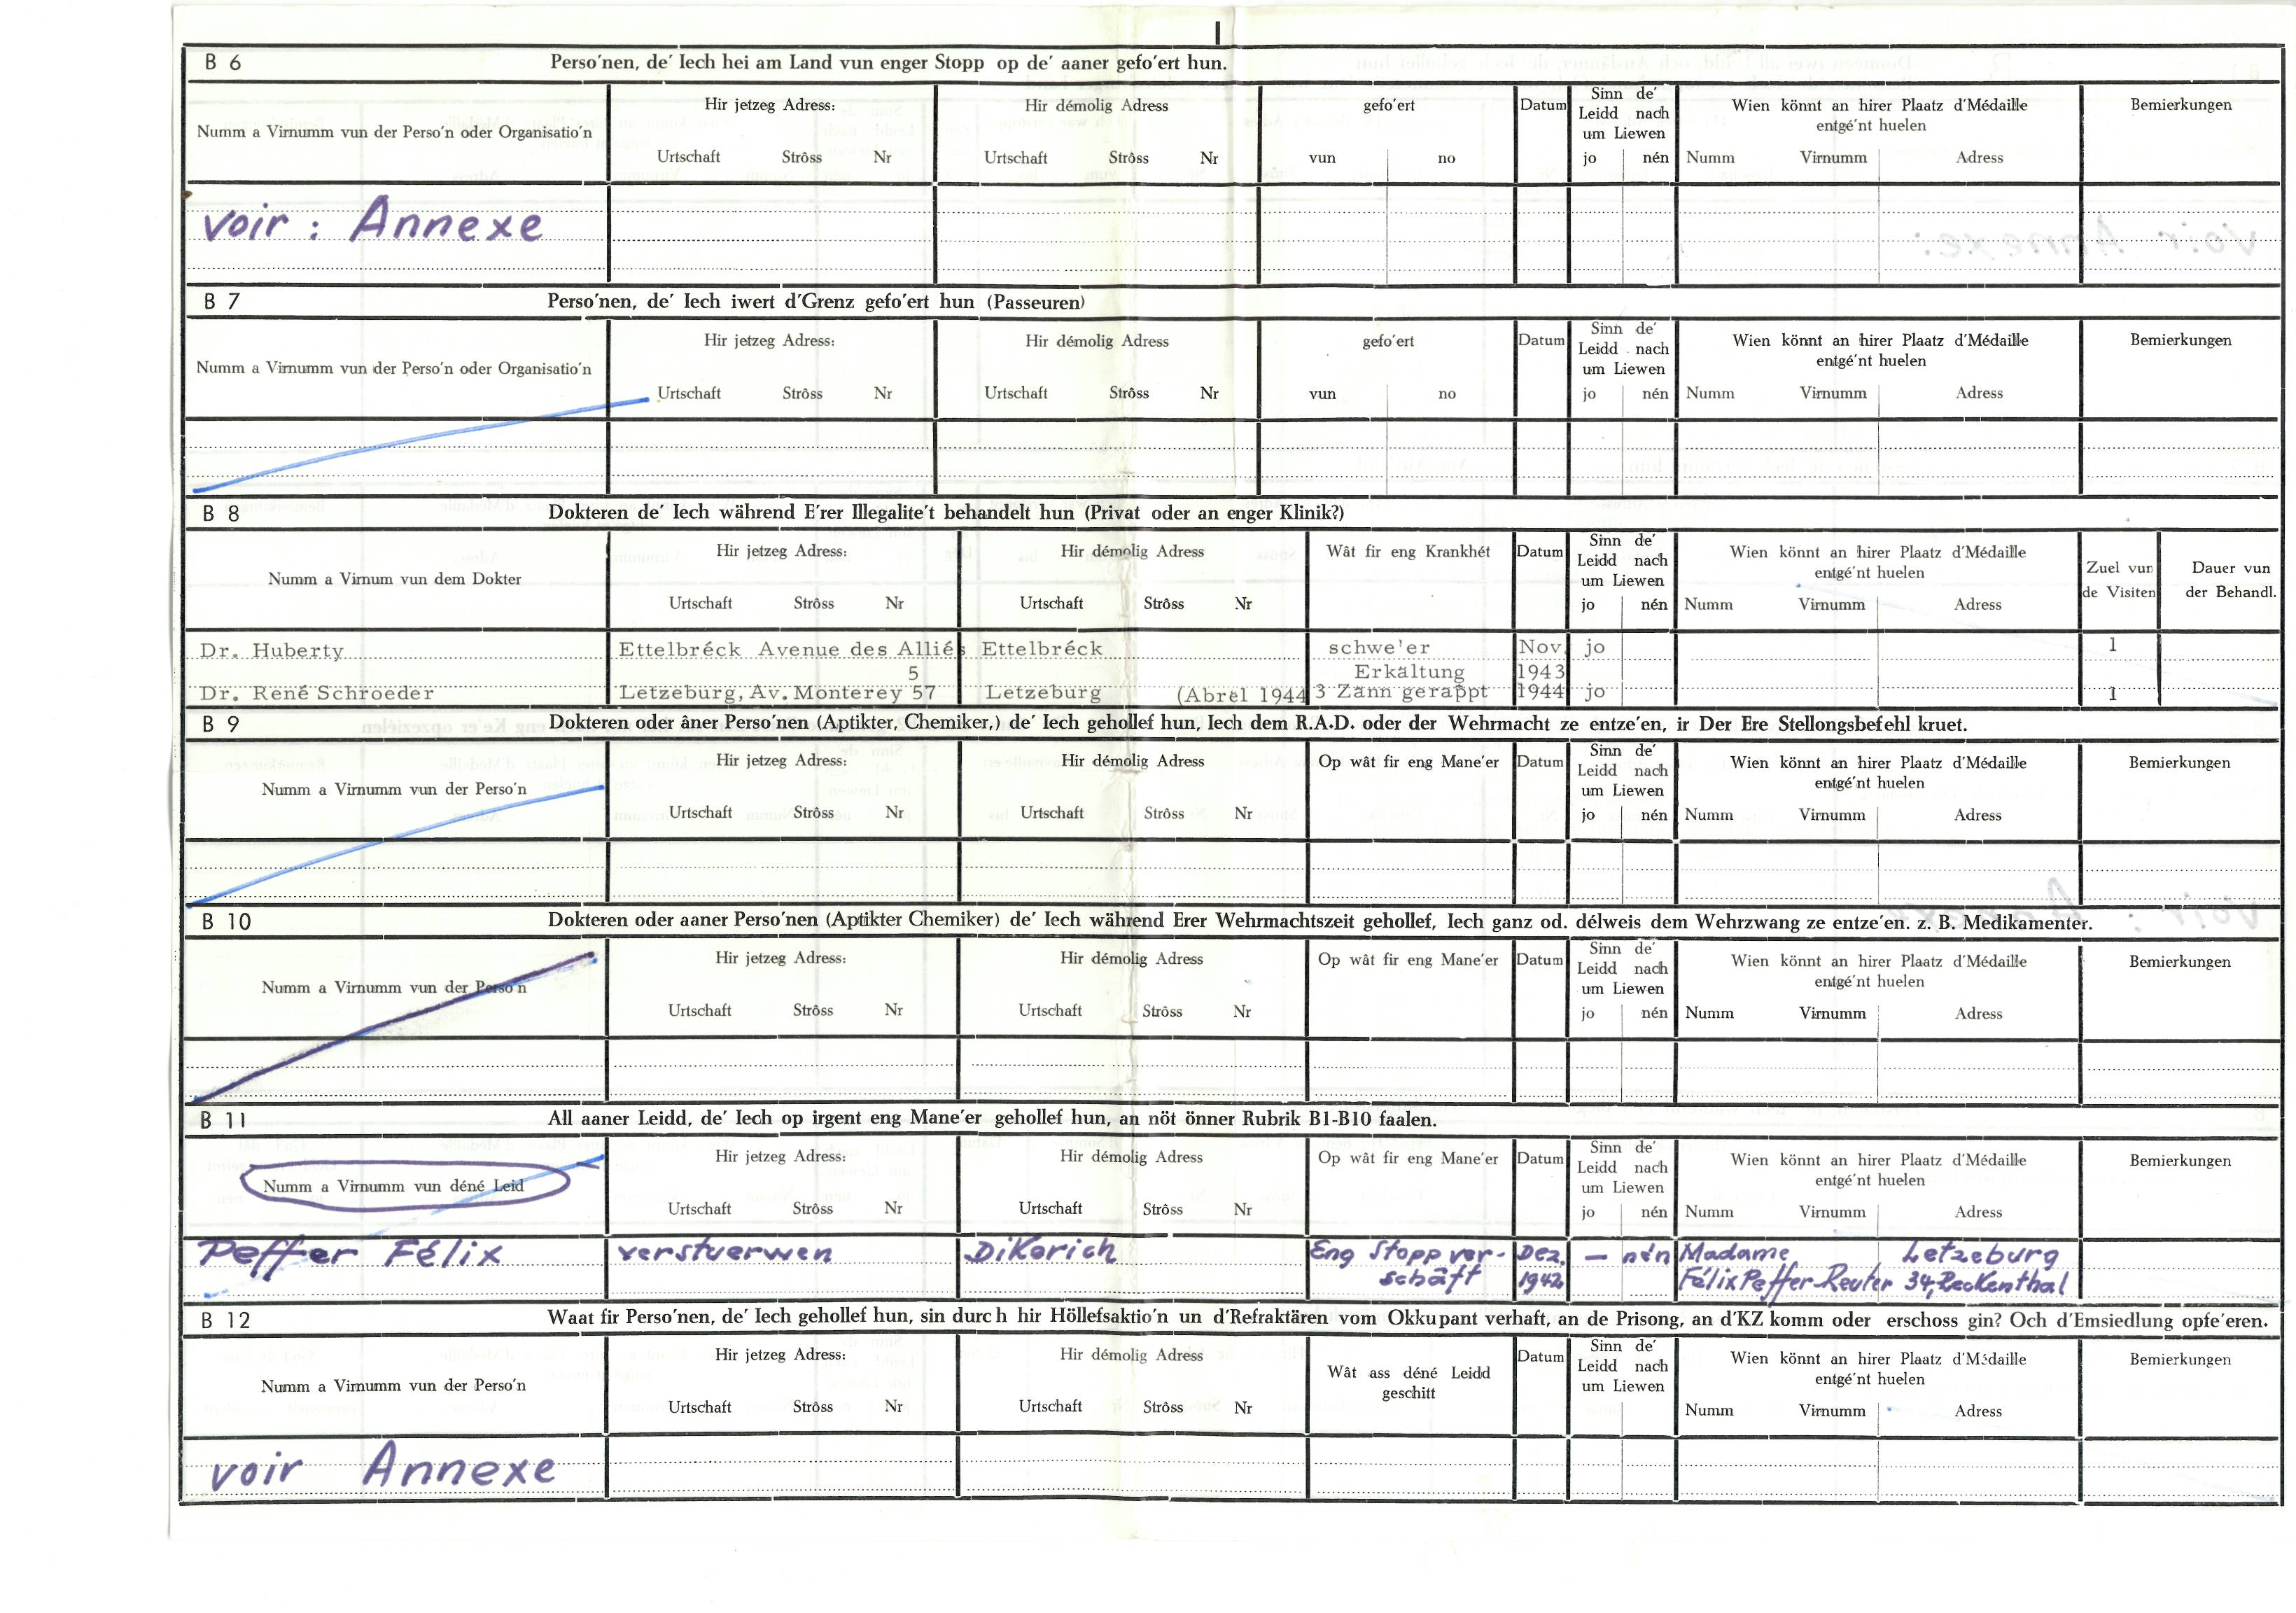 B 6 Perso'nen, de' Iech hei am Land vun enger Stopp op de' aaner gefo'ert hun.
Numm a Virnumm vun der Perso'n oder Organisatio'n
Hir jetzeg Adress:
Urtschaft Strôss Nr
Hir démolig Adress
Urtschaft Strôss Nr
gefo'ert
vun no
Datum
Sinn de'
Leidd nach
um Liewen
jo nén
Wien könnt an hirer Plaatz d'Médaille
entgé'nt huelen
Numm Virnumm Adress
Bemierkungen
voir : Annexe
B 7 Perso'nen, de' Iech iwert d'Grenz gefo'ert hun (Passeuren)
Numm a Virnumm vun der Perso'n oder Organisatio'n
Hir jetzeg Adress:
Urtschaft Strôss Nr
Hir démolig Adress
Urtschaft Strôss Nr
gefo'ert
vun no
Datum
Sinn de'
Leidd nach
um Liewen
jo nén
Wien könnt an hirer Plaatz d'Médaille
entgé'nt huelen
Numm Virnumm Adress
Bemierkungen
B 8 Dokteren de' Iech während E'rer Illegalite't behandelt hun (Privat oder an enger Klinik?)
Numm a Virnum vun dem Dokter
Hir jetzeg Adress:
Urtschaft Strôss Nr
Hir démolig Adress
Urtschaft Strôss Nr
Wât fir eng Krankhét
Datum
Sinn de'
Leidd nach
um Liewen
jo nén
Wien könnt an hirer Plaatz d'Médaille
entgé'nt huelen
Numm Virnumm Adress
Zuel vun
de Visiten
Dauer vun
der Behandl.
Dr. Huberty Ettelbréck Avenue des Alliés Ettelbréck schwe'er Nov. jo 1
5 Erkältung 1943
Dr. René Schroeder Letzeburg, Av. Monterey 57 Letzeburg (Abrël 1944 3 Zänn gerappt 1944 jo 1
B 9 Dokteren oder âner Perso'nen (Aptikter, Chemiker,) de' Iech gehollef hun, Iech dem R.A.D. oder der Wehrmacht ze entze'en, ir Der Ere Stellongsbefehl kruet.
Numm a Virnumm vun der Perso'n
Hir jetzeg Adress:
Urtschaft Strôss Nr
Hir démolig Adress
Urtschaft Strôss Nr
Op wât fir eng Mane'er
Datum
Sinn de'
Leidd nach
um Liewen
jo nén
Wien könnt an hirer Plaatz d'Médaille
entgé'nt huelen
Numm Virnumm Adress
Bemierkungen
B 10 Dokteren oder aaner Perso'nen (Aptikter Chemiker) de' Iech während Erer Wehrmachtszeit gehollef, Iech ganz od. délweis dem Wehrzwang ze entze'en. z. B. Medikamenter.
Numm a Virnumm vun der Perso'n
Hir jetzeg Adress:
Urtschaft Strôss Nr
Hir démolig Adress
Urtschaft Strôss Nr
Op wât fir eng Mane'er
Datum
Sinn de'
Leidd nach
um Liewen
jo nén
Wien könnt an hirer Plaatz d'Médaille
entgé'nt huelen
Numm Virnumm Adress
Bemierkungen
B 11 All aaner Leidd, de' Iech op irgent eng Mane'er gehollef hun, an nöt önner Rubrik B1-B10 faalen.
Numm a Virnumm vun déné Leid
Hir jetzeg Adress:
Urtschaft Strôss Nr
Hir démolig Adress
Urtschaft Strôss Nr
Op wât fir eng Mane'er
Datum
Sinn de'
Leidd nach
um Liewen
jo nén
Wien könnt an hirer Plaatz d'Médaille
entgé'nt huelen
Numm Virnumm Adress
Bemierkungen
Peffer Félix verstuerwen Dikerich Eng Stopp ver- Dez. — nén Madame Letzeburg
schâft 1942 Félix Peffer-Reuter 34,
B 12 Waat fir Perso'nen, de' Iech gehollef hun, sin durch hir Höllefsaktio'n un d'Refraktären vom Okkupant verhaft, an de Prisong, an d'KZ komm oder erschoss gin? Och d'Emsiedlung opfe'eren.
Numm a Virnumm vun der Perso'n
Hir jetzeg Adress:
Urtschaft Strôss Nr
Hir démolig Adress
Urtschaft Strôss Nr
Wât ass déné Leidd
geschitt
Datum
Sinn de'
Leidd nach
um Liewen
Wien könnt an hirer Plaatz d'Médaille
entgé'nt huelen
Numm Virnumm Adress
Bemierkungen
voir Annexe